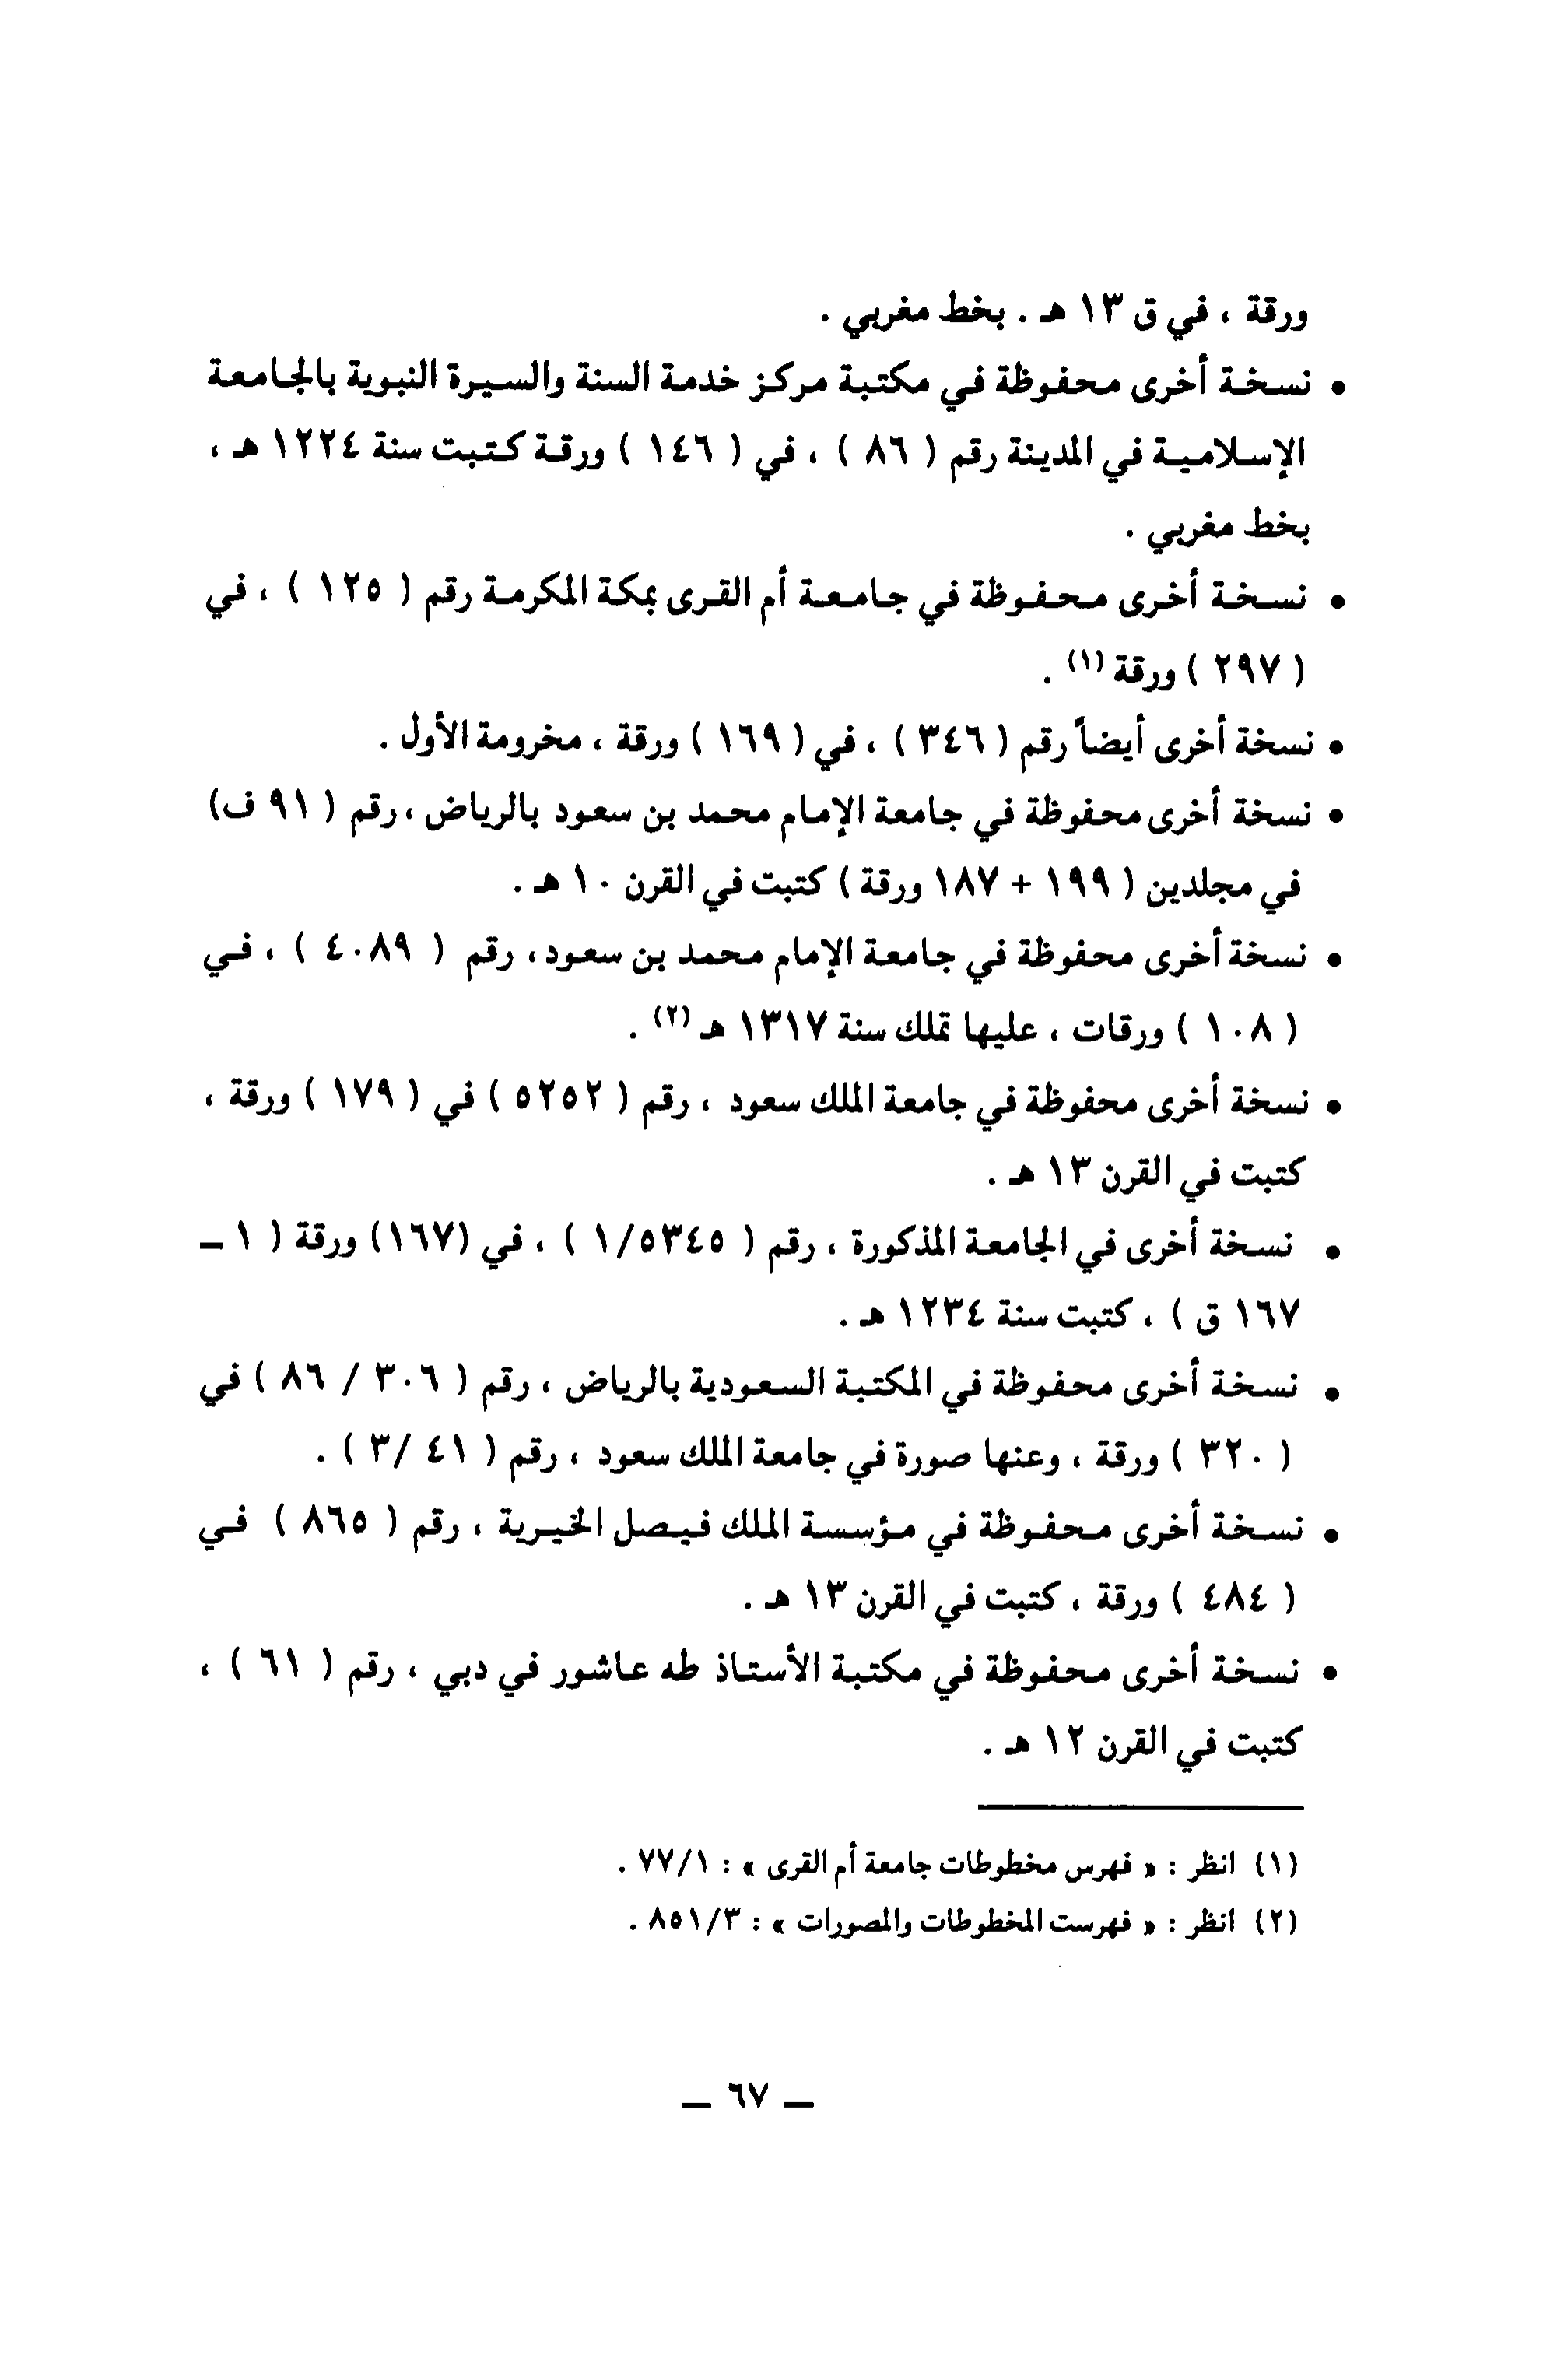 ورقة ، في ق ١٣ هـ . بخط مغربي .
• نسخة أخرى محفوظة في مكتبة مركز خدمة السنة والسيرة النبوية بالجامعة
الإسلامية في المدينة رقم ( ٨٦ ) ، في ( ١٤٦ ) ورقة كتبت سنة ١٢٢٤ هـ ،
بخط مغربي .
• نسخة أخرى محفوظة في جامعة أم القرى بمكة المكرمة رقم ( ١٢٥ ) ، في
( ٢٩٧ ) ورقة (١) .
• نسخة أخرى أيضاً رقم ( ٣٤٦ ) ، في ( ١٦٩ ) ورقة ، مخرومة الأول .
• نسخة أخرى محفوظة في جامعة الإمام محمد بن سعود بالرياض ، رقم ( ٩١ ف)
في مجلدين ( ١٩٩ + ١٨٧ ورقة ) كتبت في القرن ١٠ هـ .
• نسخة أخرى محفوظة في جامعة الإمام محمد بن سعود ، رقم ( ٤٠٨٩ ) ، في
( ١٠٨ ) ورقات ، عليها تملك سنة ١٣١٧ هـ (٢) .
• نسخة أخرى محفوظة في جامعة الملك سعود ، رقم ( ٥٢٥٢ ) في ( ١٧٩ ) ورقة ،
كتبت في القرن ١٣ هـ .
• نسخة أخرى في الجامعة المذكورة ، رقم ( ١/٥٣٤٥ ) ، في (١٦٧) ورقة ( ١ ـ
١٦٧ ق ) ، كتبت سنة ١٢٣٤ هـ .
• نسخة أخرى محفوظة في المكتبة السعودية بالرياض ، رقم ( ٣٠٦ / ٨٦ ) في
( ٣٢٠ ) ورقة ، وعنها صورة في جامعة الملك سعود ، رقم ( ٤١ /٣ ) .
• نسخة أخرى محفوظة في مؤسسة الملك فيصل الخيرية ، رقم ( ٨٦٥ ) في
( ٤٨٤ ) ورقة ، كتبت في القرن ١٣ هـ .
• نسخة أخرى محفوظة في مكتبة الأستاذ طه عاشور في دبي ، رقم ( ٦١ ) ،
كتبت في القرن ١٢ هـ .
(١) انظر : « فهرس مخطوطات جامعة أم القرى » : ٧٧/١ .
(٢) انظر : « فهرست المخطوطات والمصورات » : ٨٥١/٣ .
ـ ٦٧ ـ